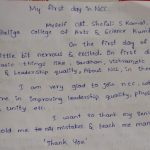 My first day in Ncc
Myself Cdt. Shefali S Kamat,
College of Arts & Science Kum
On the first day of
little bit nervous & excited. On first d
basic things like, Savdhan, Vishram
& Leadership quality, About Ncc, in the
I am very glad to join ncc. w
me in Improving leadership quality, phys
& unity etc.
I want to thank my Seni
told me to my mistakes & teach me man
Thank You